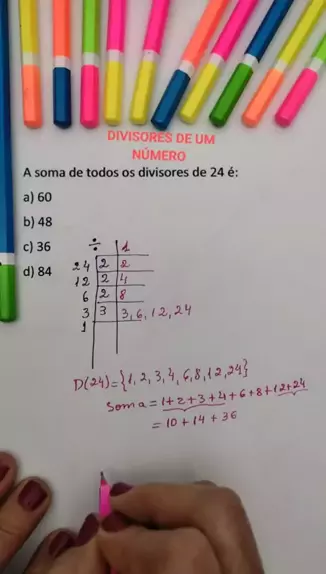 DIVISORES DE UM
NÚMERO
A soma de todos os divisores de 24 é:
a) 60
b) 48
c) 36
d) 84
÷ 1
24 2 2
12 2 4
6 2 8
3 3 3, 6, 12, 24
1
D(24)={1, 2, 3, 4, 6, 8, 12, 24}
Soma = 1+2+3+4+6+8+12+24
= 10 + 14 + 36